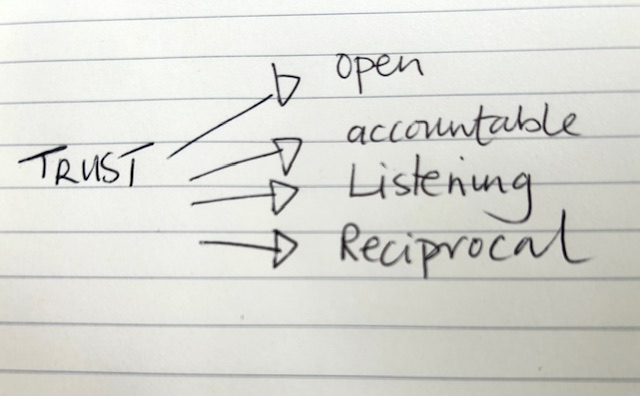 open
accountable
TRUST
Listening
Reciprocal